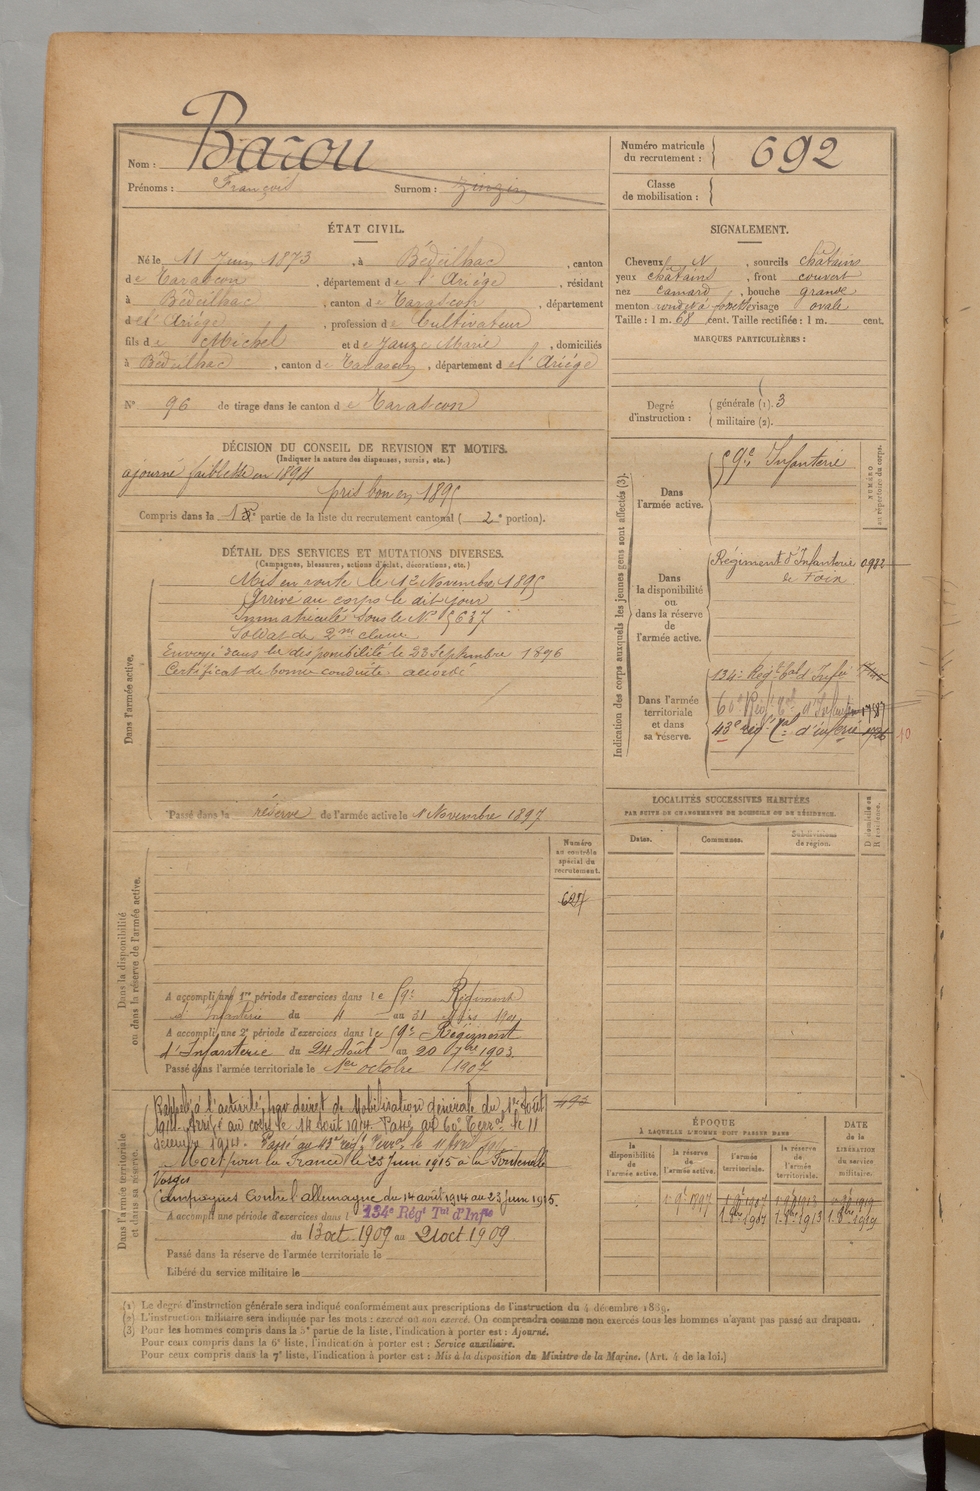 Nom : Barou
Prénoms : François Surnom : Zinzin
Numéro matricule
du recrutement : 692
Classe
de mobilisation :
ÉTAT CIVIL.
Né le 11 Juin 1873, à Bédeilhac, canton
de Tarascon, département de l'Ariège, résidant
à Bédeilhac, canton de Tarascon, département
de l'Ariège, profession de Cultivateur
fils de Michel et de Jauze Marie, domiciliés
à Bédeilhac, canton de Tarascon, département de l'Ariège
N° 96 de tirage dans le canton de Tarascon
SIGNALEMENT.
Cheveux N, sourcils châtains
yeux châtains, front couvert
nez camard, bouche grande
menton rond et à fossette visage ovale
Taille : 1 m. 68 cent. Taille rectifiée : 1 m. cent.
MARQUES PARTICULIÈRES :
Degré
d'instruction :
générale (1). 3
militaire (2).
DÉCISION DU CONSEIL DE REVISION ET MOTIFS.
(Indiquer la nature des dispenses, sursis, etc.)
ajourné faiblesse en 1894
pris bon en 1895
Compris dans la 1re partie de la liste du recrutement cantonal (2e portion).
DÉTAIL DES SERVICES ET MUTATIONS DIVERSES.
(Campagnes, blessures, actions d'éclat, décorations, etc.)
Dans l'armée active.
Mis en route le 12 Novembre 1895
Arrivé au corps le dit jour
Immatriculé sous le N° 5637
Soldat de 2me classe
Envoyé dans la disponibilité le 23 Septembre 1896
Certificat de bonne conduite accordé
Passé dans la réserve de l'armée active le 1 Novembre 1897
Indication des corps auxquels les jeunes gens sont affectés (3).
NUMÉRO
au répertoire du corps.
Dans
l'armée active.
59e Infanterie
Dans
la disponibilité
ou
dans la réserve
de
l'armée active.
Régiment d'Infanterie 0982
de Foix
Dans l'armée
territoriale
et dans
sa réserve.
134e Régt tal d'Infie
60e Régt Tal d'Infanterie
43e régt tal d'infrie
10
LOCALITÉS SUCCESSIVES HABITÉES
PAR SUITE DE CHANGEMENTS DE DOMICILE OU DE RÉSIDENCE.
Dates.
Communes.
Subdivisions
de région.
D domicile ou
R résidence.
Numéro
au contrôle
spécial du
recrutement.
Dans la disponibilité
ou dans la réserve de l'armée active.
A accompli une 1re période d'exercices dans le 59e Régiment
d'Infanterie du 4 au 31 1901
A accompli une 2e période d'exercices dans le 59e Régiment
d'Infanterie du 24 Août au 20 7bre 1903.
Passé dans l'armée territoriale le 1er octobre 1907
Dans l'armée territoriale
et dans sa réserve.
Rappelé à l'activité par décret de Mobilisation Générale du 1er Août
1914. Arrivé au corps le 14 Août 1914. Passé au 60e Terral le 11
décembre 1914. Passé au 43e régt Terral le 11
Mort pour la France le 23 Juin 1915 à la Fontenelle
Vosges
Campagnes Contre l'allemagne du 14 août 1914 au 23 juin 1915.
A accompli une période d'exercices dans l 134e Régt Tal d'Infie
du 13 oct 1909 au 21 oct 1909
Passé dans la réserve de l'armée territoriale le
Libéré du service militaire le
ÉPOQUE
À LAQUELLE L'HOMME DOIT PASSER DANS
DATE
de la
LIBÉRATION
du service
militaire.
la
disponibilité
de
l'armée active.
la réserve
de
l'armée active.
l'armée
territoriale.
la réserve
de
l'armée
territoriale.
1. 9e 1897 1. 9e 1907 1. 9e 1913 1. 9e 1919
1. 8bre 1907 1. 8bre 1913 1. 8bre 1919
(1) Le degré d'instruction générale sera indiqué conformément aux prescriptions de l'instruction du 4 décembre 1889.
(2) L'instruction militaire sera indiquée par les mots : exercé ou non exercé. On comprendra comme non exercés tous les hommes n'ayant pas passé au drapeau.
(3) Pour les hommes compris dans la 5e partie de la liste, l'indication à porter est : Ajourné.
Pour ceux compris dans la 6e liste, l'indication à porter est : Service auxiliaire.
Pour ceux compris dans la 7e liste, l'indication à porter est : Mis à la disposition du Ministre de la Marine. (Art. 4 de la loi.)